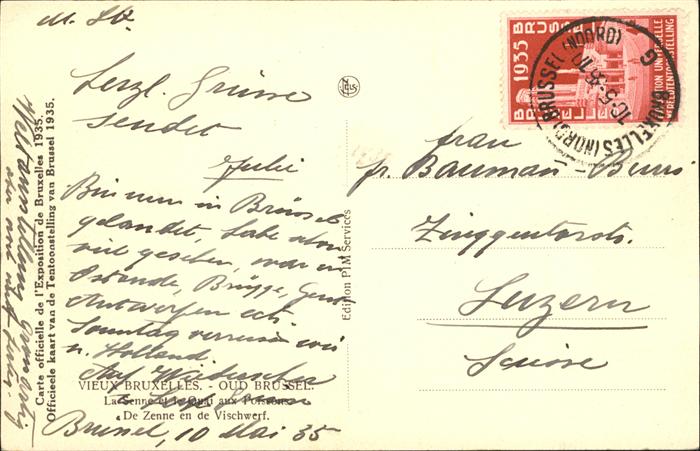 M. Lb.
Herzl. Grüsse
sendet
Julie
Bin nun in Brüssel
gelandet, habe schon
viel gesehen, war in
Ostende, Brügge, Gent,
Antwerpen ect.
Sonntag verreisen wir
n. Holland.
Auf Wiedersehn
Brüssel, 10 Mai 35
Weltausstellung
Carte officielle de l'Exposition de Bruxelles 1935.
Officieele kaart van de Tentoonstelling van Brussel 1935.
VIEUX BRUXELLES. - OUD BRUSSEL.
La Senne et le Quai aux Poissons.
De Zenne en de Vischwerf.
Edition PIM Services
1935 BRUSSEL
BRUXELLES (NORD) BRUSSEL (NOORD)
10-5-35
G
WERELDTENTOONSTELLING
Frau
fr. Bauman-Burri
Zinggentorstr.
Luzern
Suisse